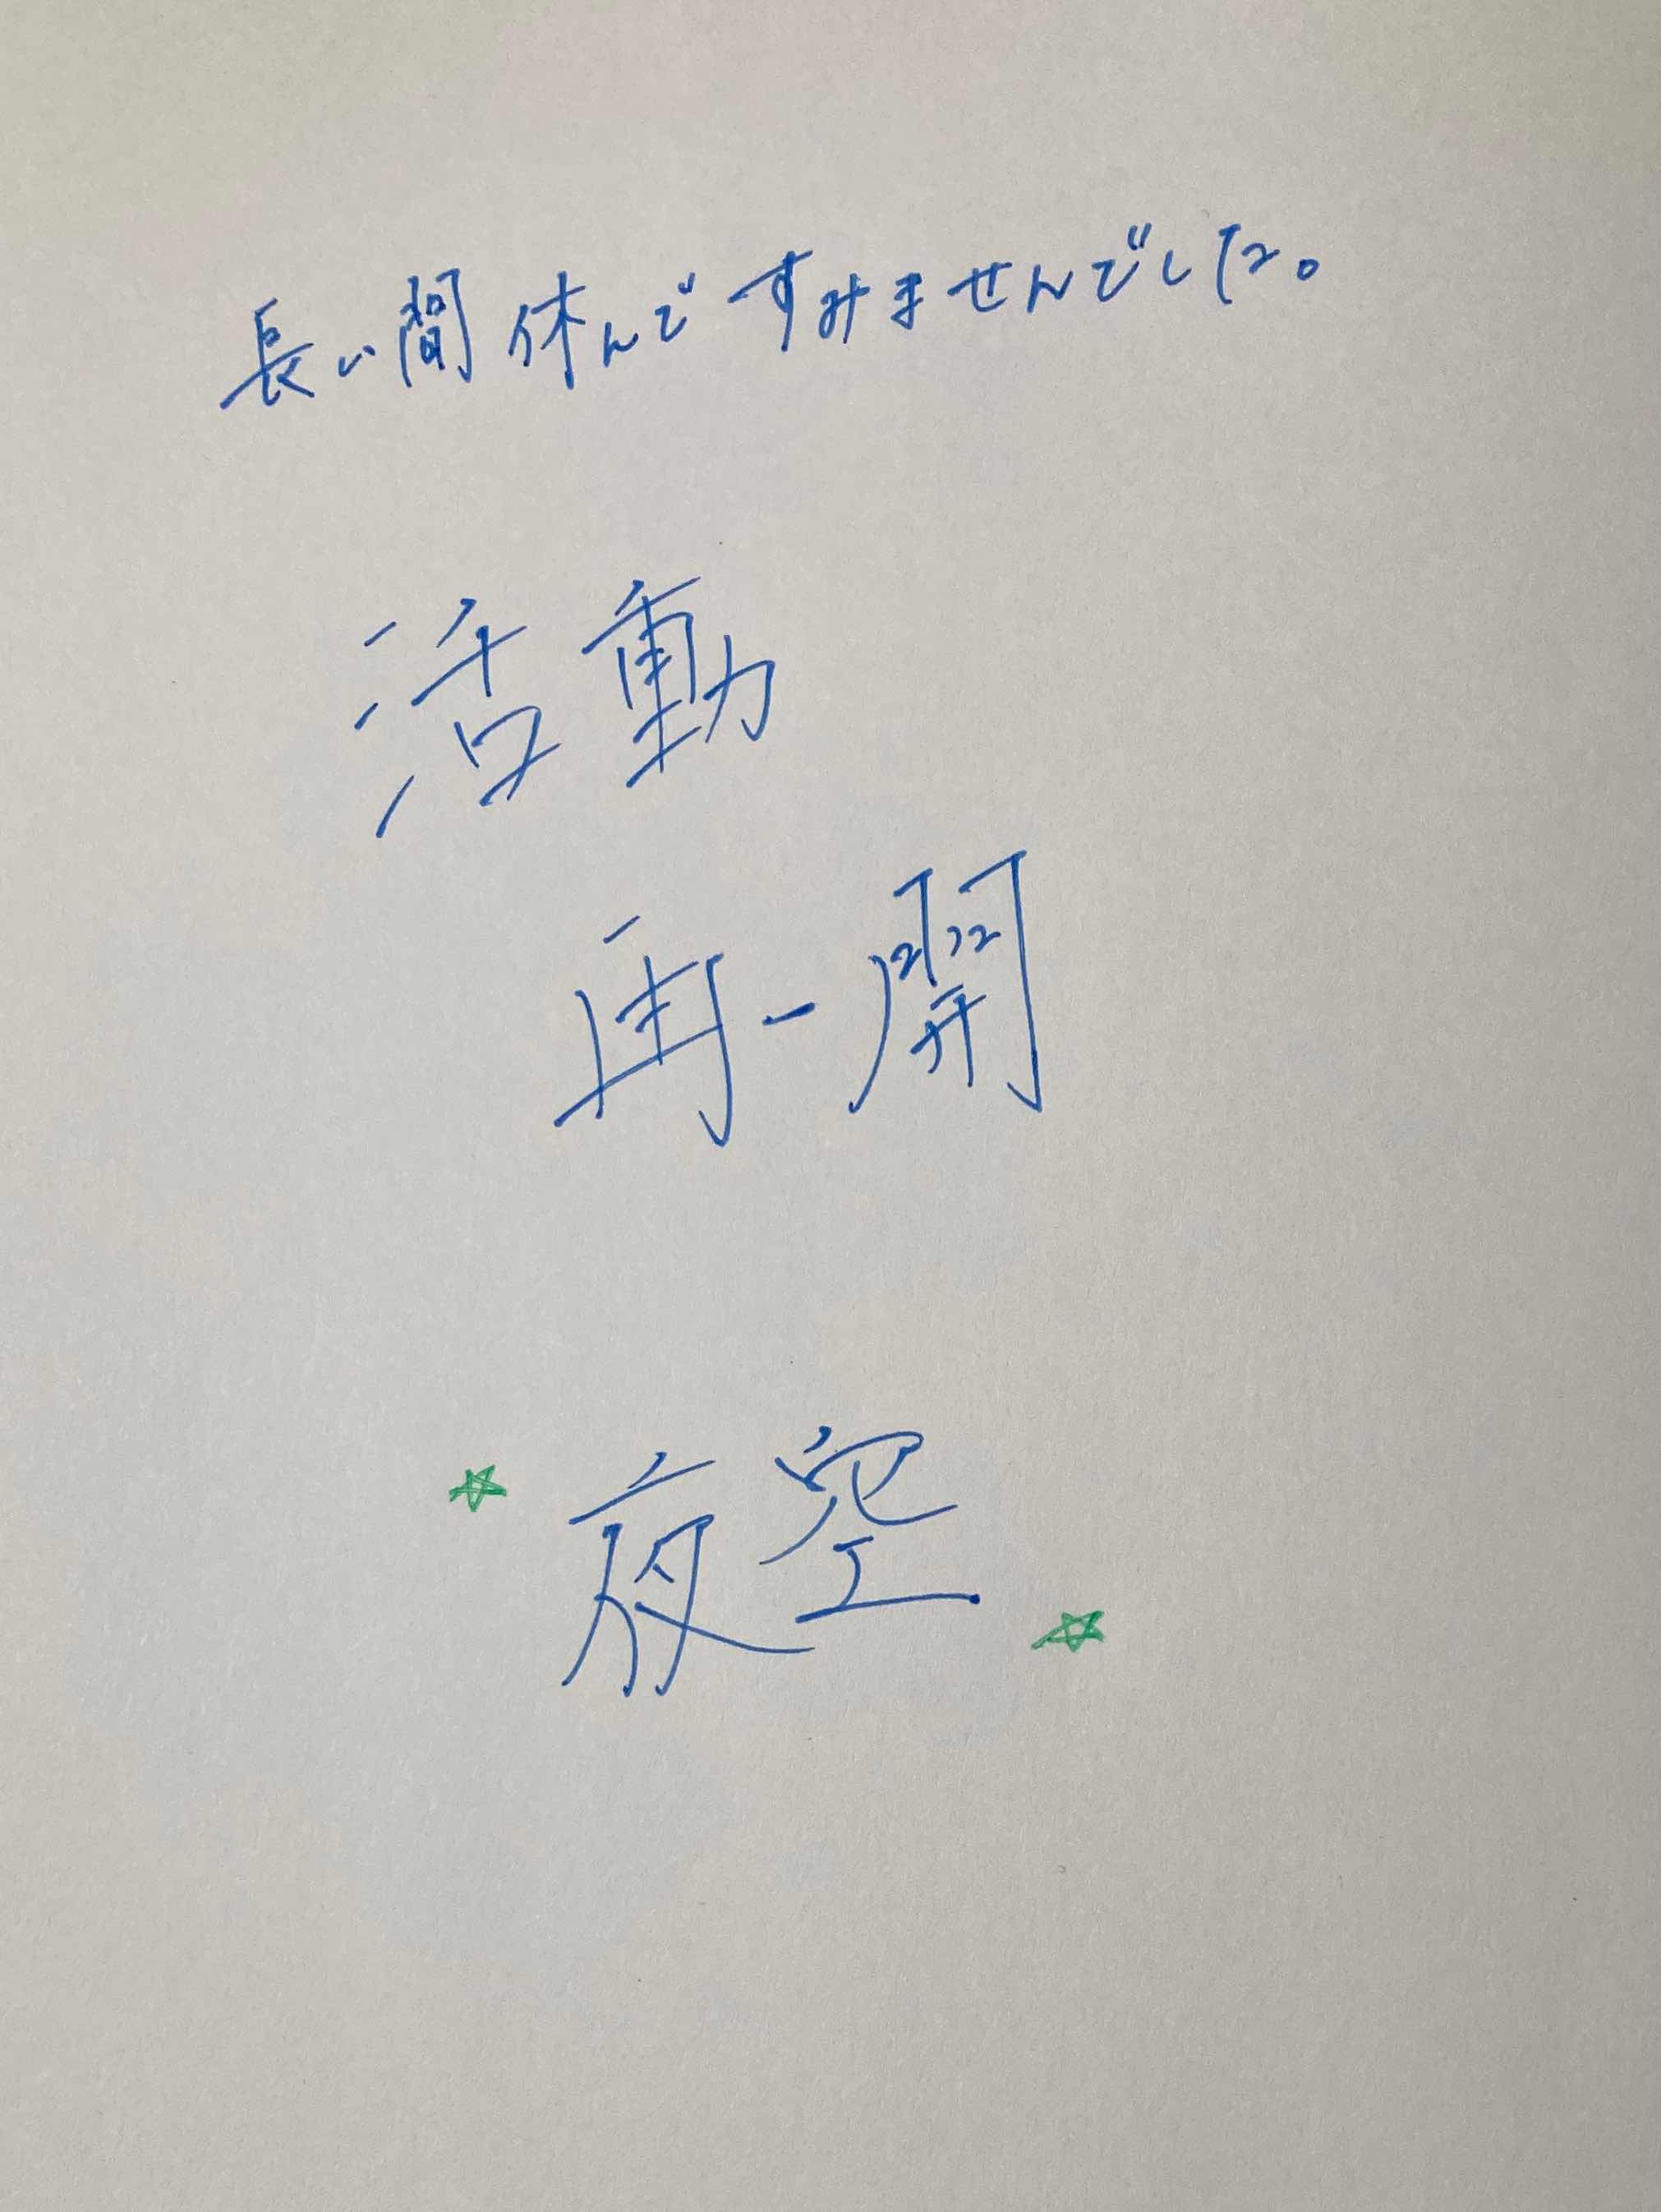 長い間休んですみませんでした。
活動
再-開
☆夜空☆